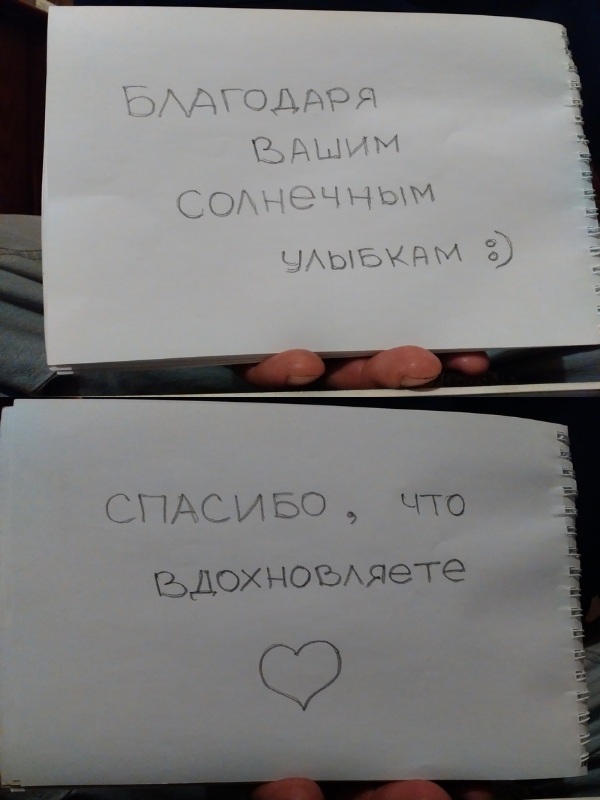 БЛАГОДАРЯ
ВАШИМ
СОЛНЕЧНЫМ
УЛЫБКАМ :)
СПАСИБО, ЧТО
ВДОХНОВЛЯЕТЕ